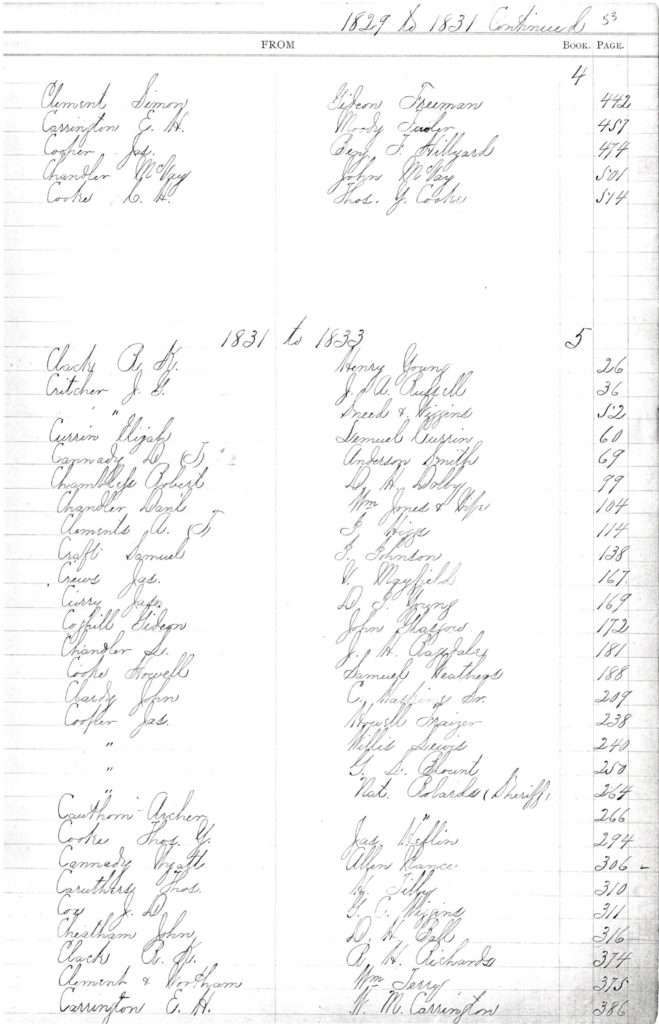 1829 to 1831 Continued 53
FROM BOOK. PAGE.
4
Clement Simon Gideon Freeman 442
Carrington E. H. Moody Fowler 457
Cooper Jas. Benj. F. Hillyard 474
Chandler McVay John McVay 501
Cooke C. H. Thos. Y. Cooke 574
1831 to 1833 5
Clack R. K. Henry Young 26
Critcher J. G. J. A. Russell 36
" Sneed & Wiggins 52
Currin Elijah Lemuel Currin 60
Cannady D. (T) Anderson Smith 69
Chambless Robert D. H. Dolby 99
Chandler Danl Wm Jones & Wife 104
Clements A. (T) J. Higgs 114
Craft Samuel J. Johnson 138
Crews Jas. V. Mayfield 167
Curry Jas. D. J. Young 169
Coghill Gideon John Glasgow 172
Chandler S. J. H. Ragsdale 181
Cooke Howell Samuel Weathers 188
Clardy John C. Haskins Sr. 209
Cooper Jas. Howell Frazier 238
" Willis Lewis 240
" G. S. Blount 250
" Nat. Robards (Sheriff) 264
Cawthorn Archer " 266
Cooke Thos. Y. Jas Heflin 294
Cannady Wyatt Allen Vance 306
Caruthers Thos. Tilly 310
Cox J. D. G. C. Wiggins 311
Cheatham John D. H. Ball 316
Clack R. K. R. H. Richards 374
Clement & Wortham Wm Terry 375
Carrington E. H. W. M. Carrington 386